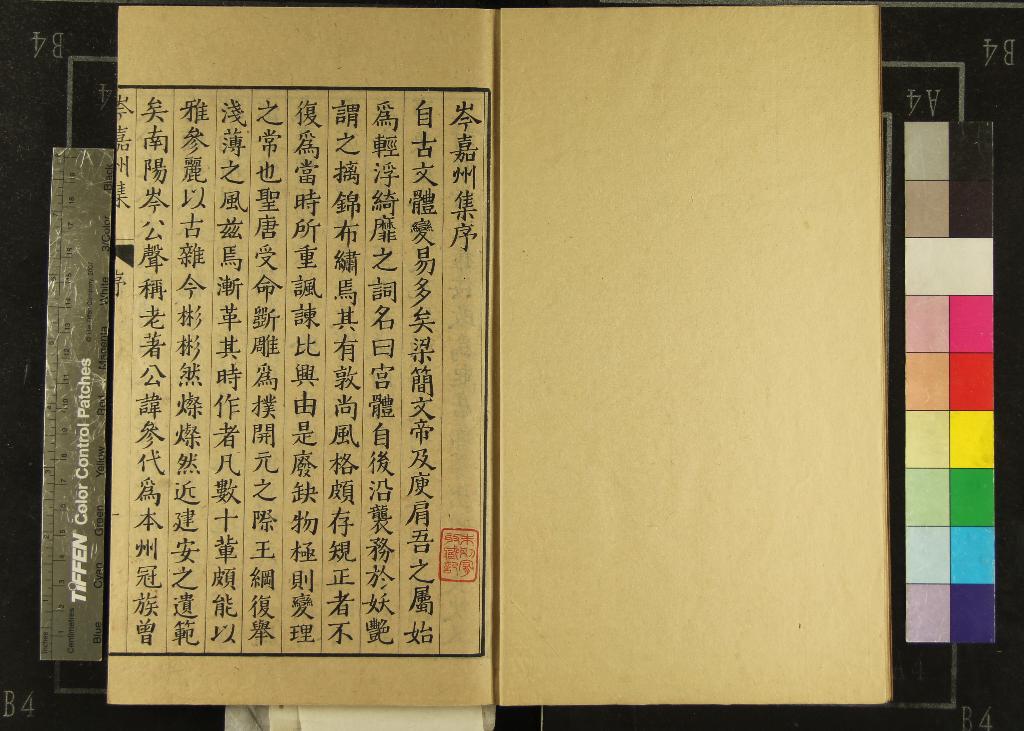 岑嘉州集序
自古文體變易多矣梁簡文帝及庾肩吾之屬始
爲輕浮綺靡之詞名曰宮體自後沿襲務於妖艷
謂之摛錦布繡焉其有敦尚風格頗存規正者不
復爲當時所重諷諫比興由是廢缺物極則變理
之常也聖唐受命斲雕爲撲開元之際王綱復舉
淺薄之風茲焉漸革其時作者凡數十輩頗能以
雅參麗以古雜今彬彬然燦燦然近建安之遺範
矣南陽岑公聲稱老著公諱參代爲本州冠族曾
岑嘉州集
序
TIFFEN Color Control Patches
Inches
Centimetres
Blue
Cyan
Green
Yellow
Red
Magenta
White
3/Color
Black
B4
A4
B4
B4
B4